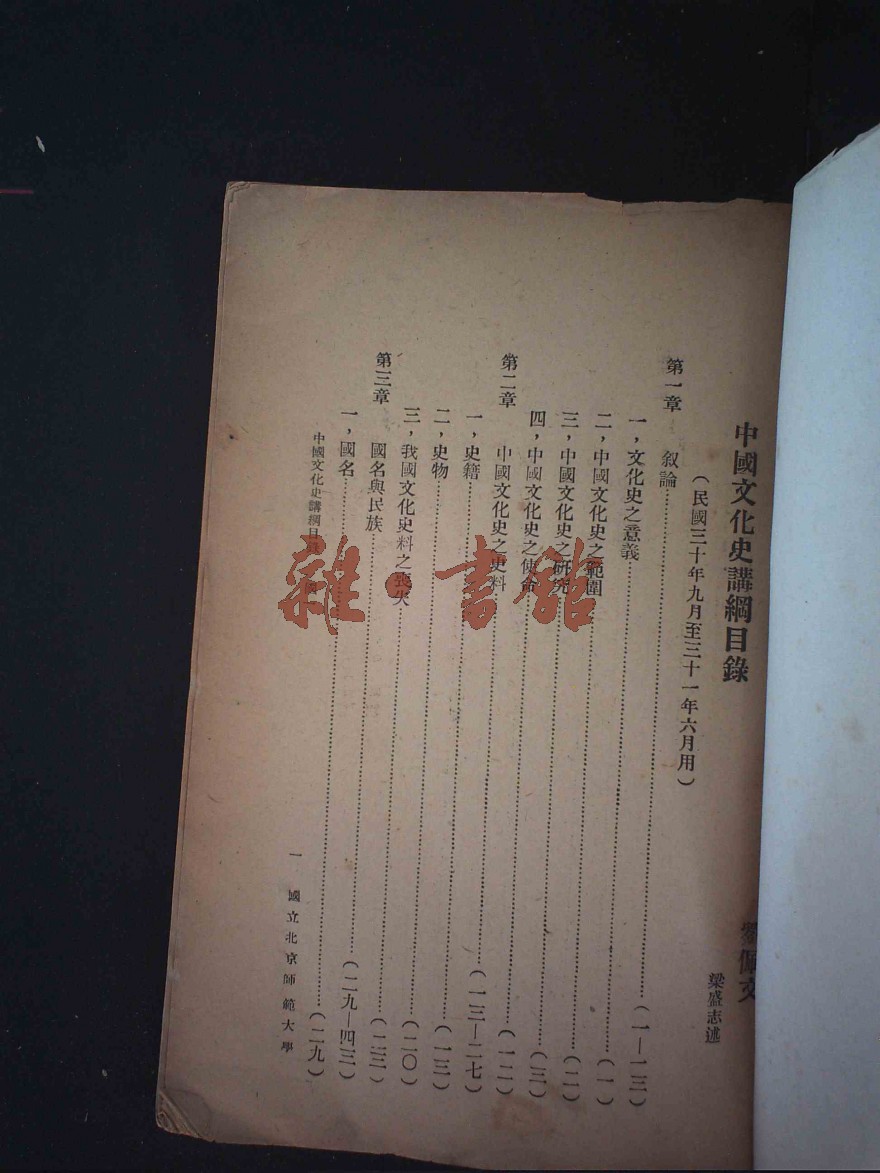 中國文化史講綱目錄
梁盛志述
(民國三十年九月至三十一年六月用)
第一章 叙論……(一—一三)
一,文化史之意義……(一)
二,中國文化史之範圍……(二)
三,中國文化史之研究……(三)
四,中國文化史之使命……(一二)
第二章 中國文化史之史料……(一三—二七)
一,史籍……(一三)
二,史物……(二〇)
三,我國文化史料之喪失……(二三)
第三章 國名與民族……(二九—四三)
一,國名……(二九)
中國文化史講綱目錄 一 國立北京師範大學
雜·書館